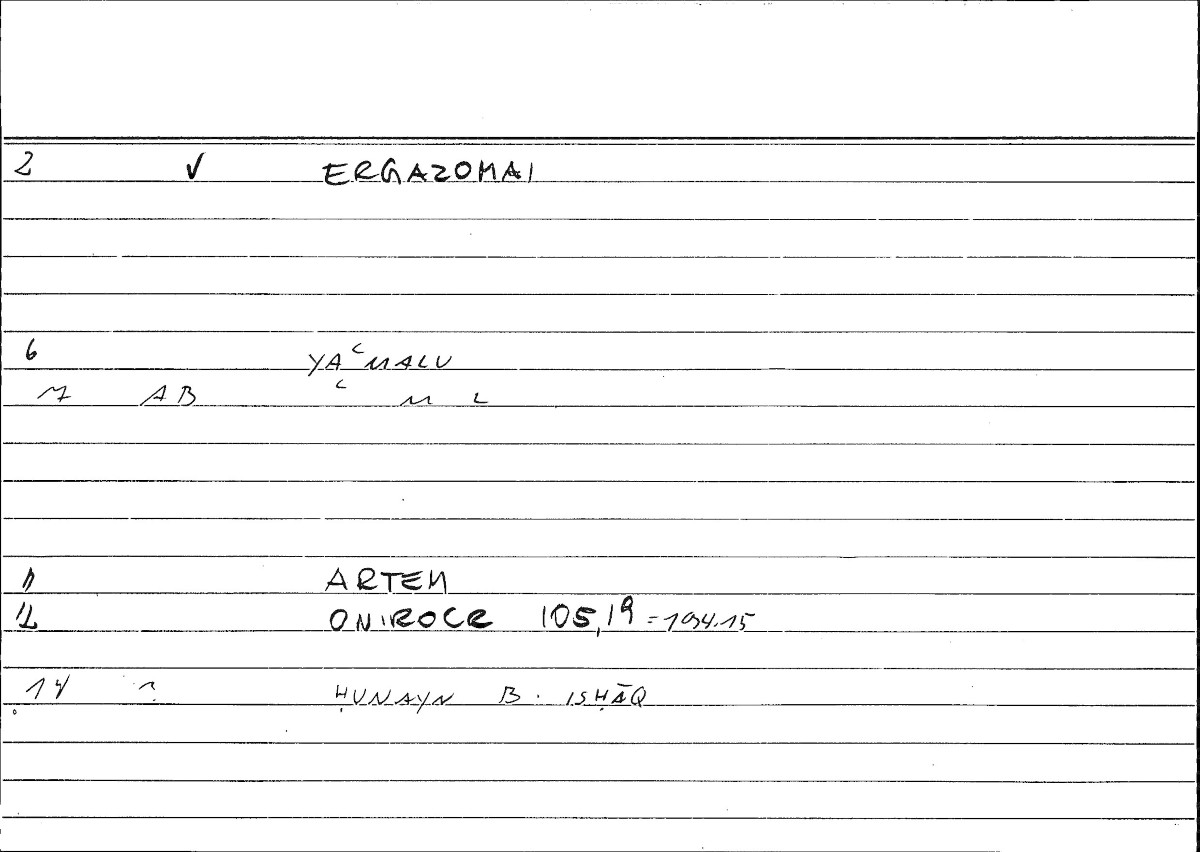 2 √ ERGAZOMAI
6 YAʿMALU
7 AB ʿ M L
11 ARTEM
12 ONIROCR 105,19 = 194.15
14 ? ḤUNAYN B. ISḤĀQ